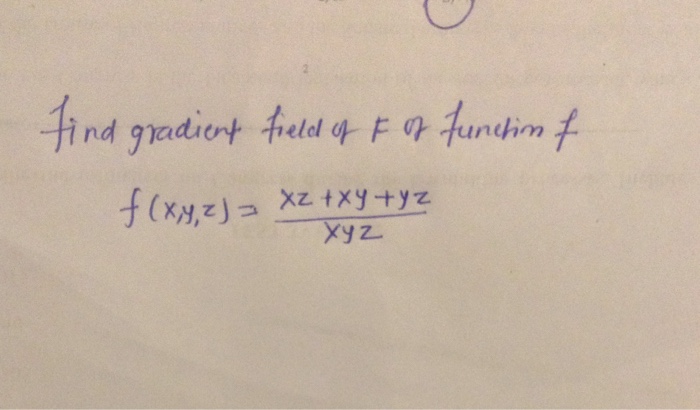 find gradient field of F of function f
f(x,y,z) = xz+xy+yz
xyz